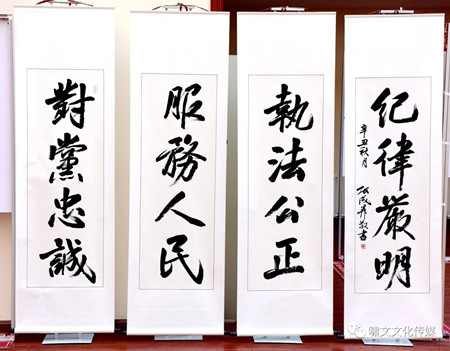 對黨忠誠
服務人民
執法公正
纪律嚴明
辛丑秋月
敬書
啸文文化传媒